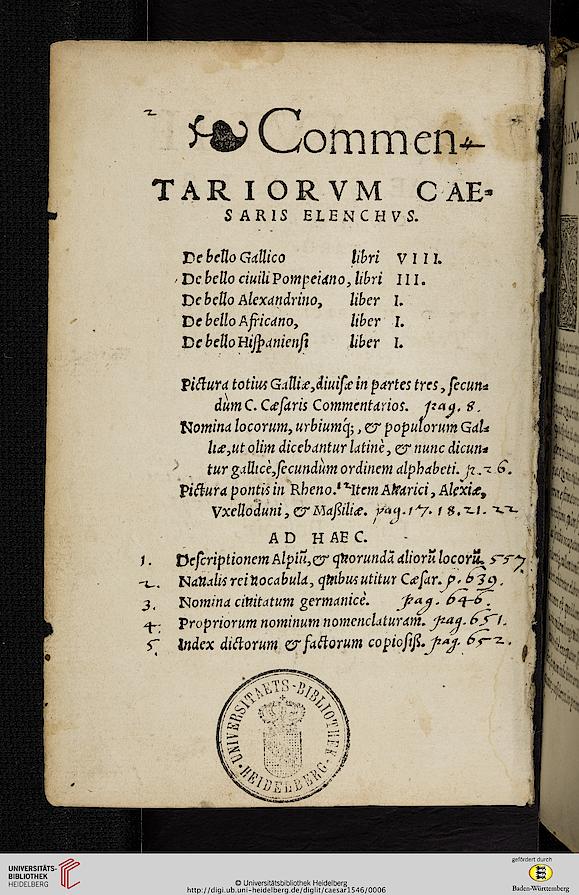 2
Commen-
TARIORVM CAE-
SARIS ELENCHVS.
De bello Gallico libri VIII.
De bello ciuili Pompeiano, libri III.
De bello Alexandrino, liber I.
De bello Africano, liber I.
De bello Hiſpanienſi liber I.
Pictura totius Galliæ, diuiſæ in partes tres, ſecun-
dùm C. Cæſaris Commentarios. pag. 8.
Nomina locorum, urbiumq́;, & populorum Gal-
liæ, ut olim dicebantur latinè, & nunc dicun-
tur gallicè, ſecundùm ordinem alphabeti. p. 26.
Pictura pontis in Rheno. 12 Item Auarici, Alexiæ,
Vxelloduni, & Maßiliæ. pag. 17. 18. 21. 22
AD HAEC.
1. Deſcriptionem Alpiũ, & quorundã aliorũ locorũ. 557
2. Naualis rei uocabula, quibus utitur Cæſar. p. 639.
3. Nomina ciuitatum germanicè. pag. 646.
4. Propriorum nominum nomenclaturam. pag. 651.
5. Index dictorum & factorum copioſiß. pag. 652.
UNIVERSITAETS-BIBLIOTHEK
HEIDELBERG
UNIVERSITÄTS-
BIBLIOTHEK
HEIDELBERG
© Universitätsbibliothek Heidelberg
http://digi.ub.uni-heidelberg.de/diglit/caesar1546/0006
gefördert durch
Baden-Württemberg